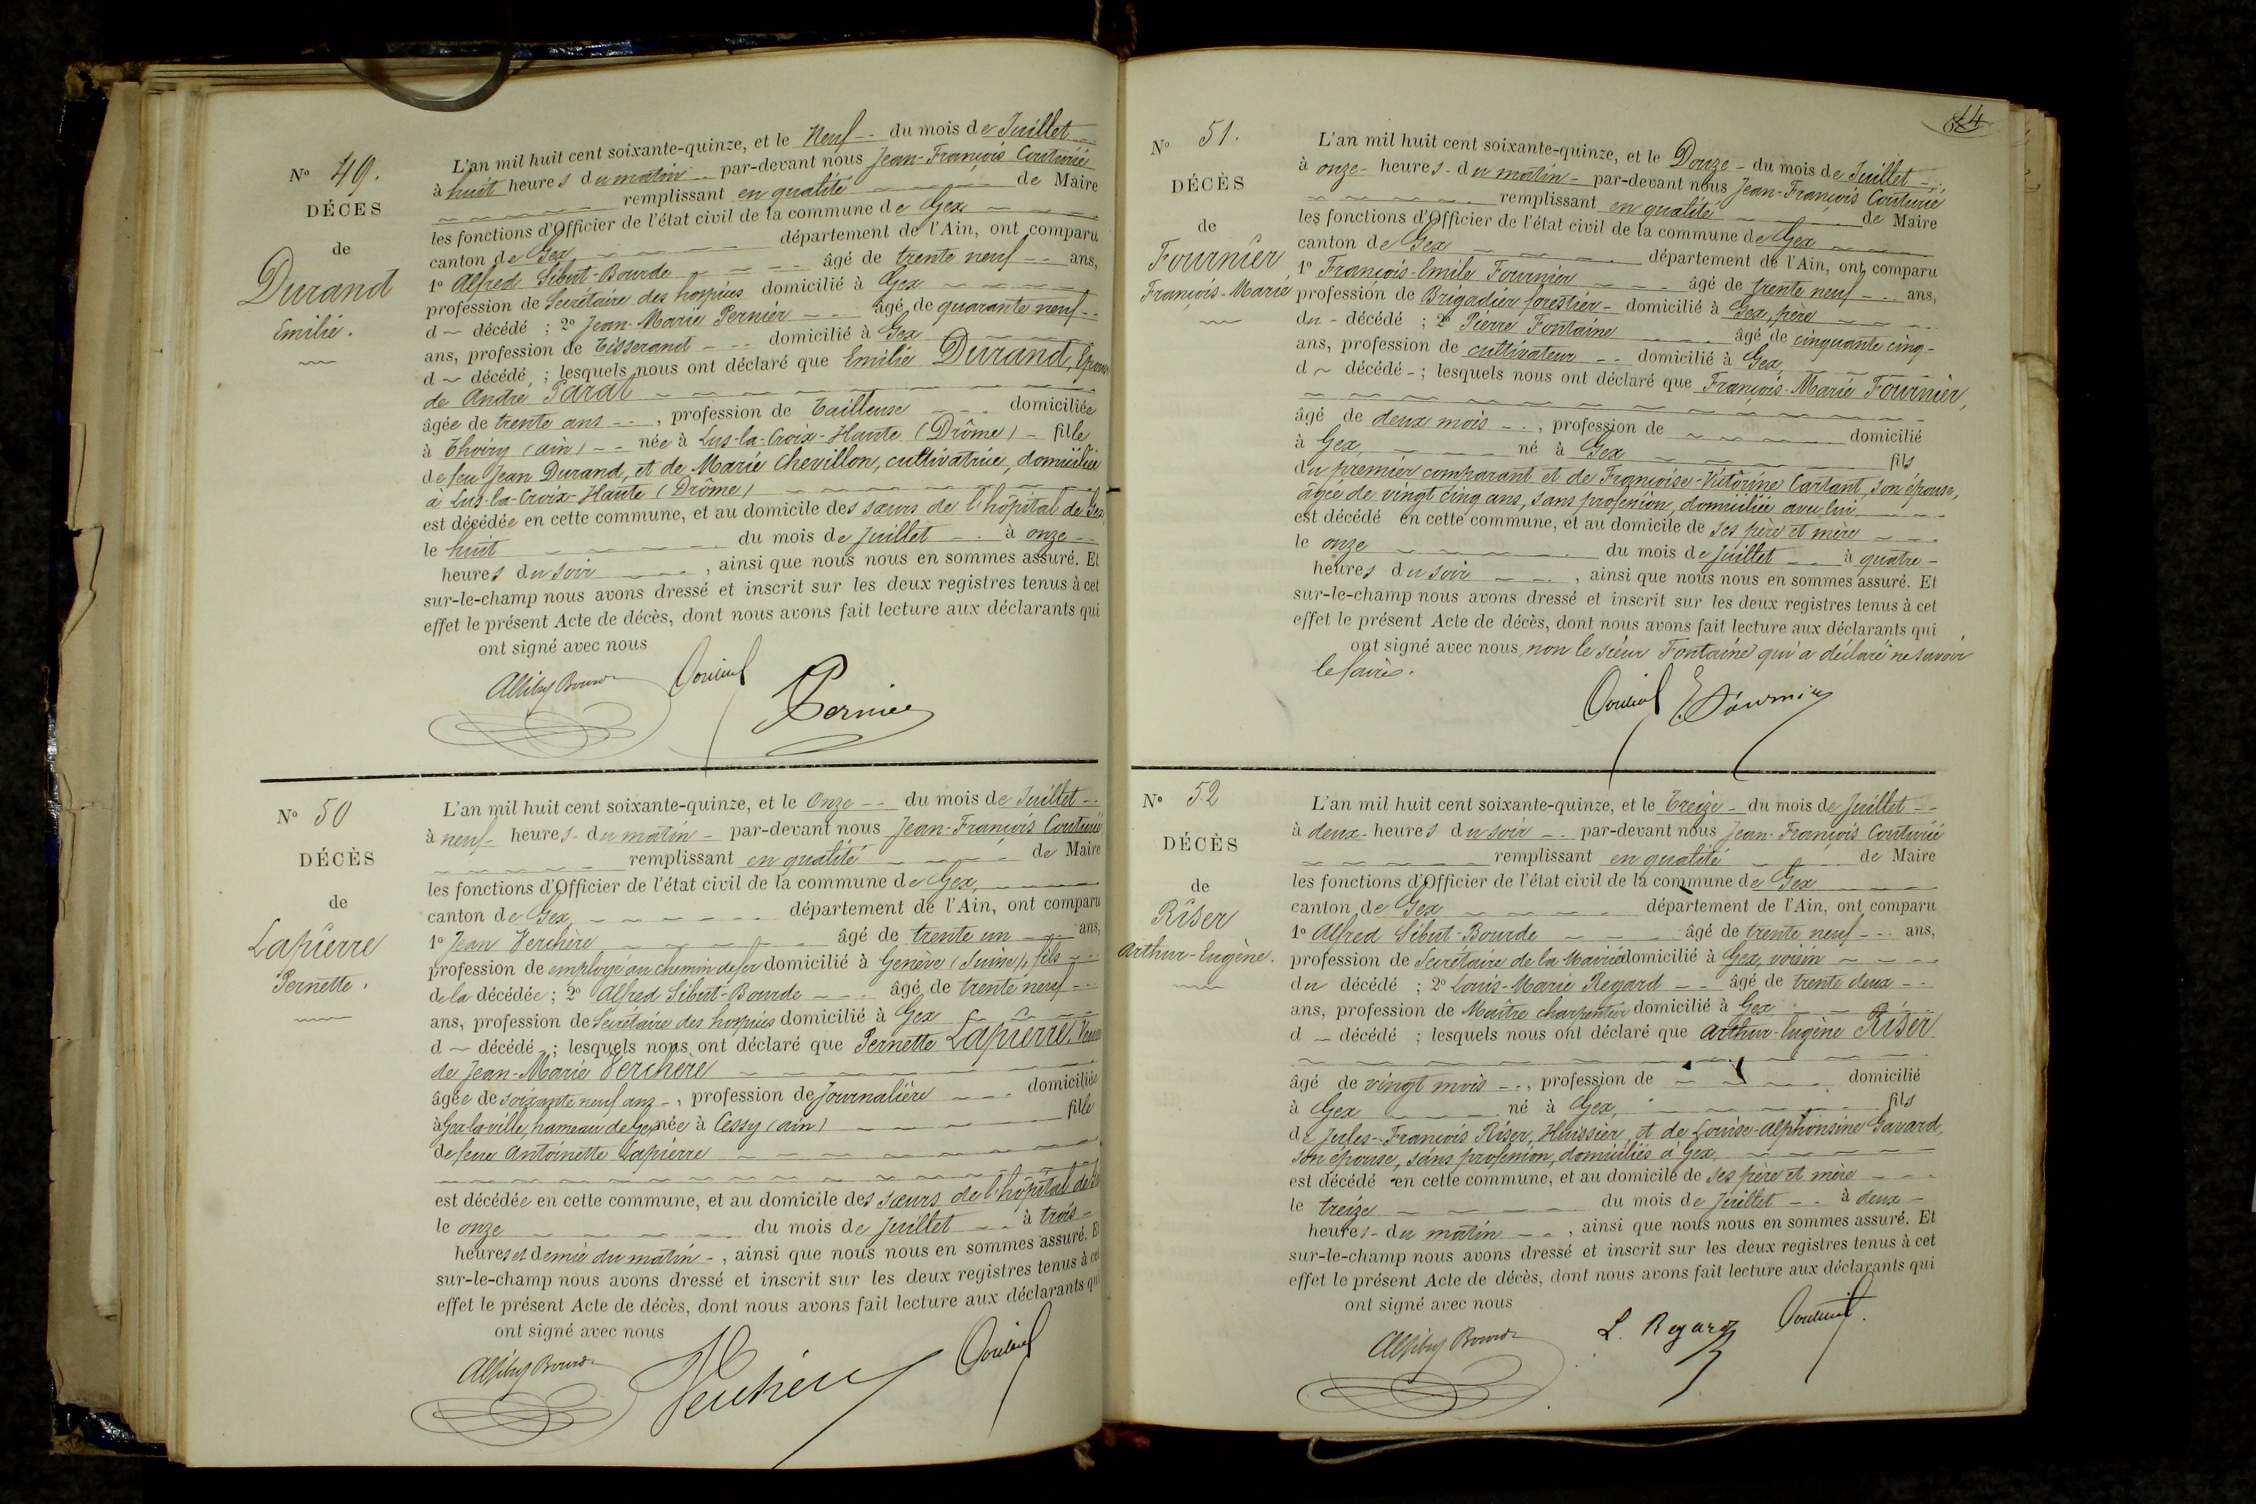 N° 49.
DÉCÈS
de
Durand
Emilie.
L'an mil huit cent soixante-quinze, et le Neuf du mois de Juillet
à huit heures du matin par-devant nous Jean-François Couturié
remplissant en qualité de Maire
les fonctions d'Officier de l'état civil de la commune de Gex
canton de Gex département de l'Ain, ont comparu
1° Alfred Sibut-Bourde âgé de trente neuf ans,
profession de Secrétaire des hospices domicilié à Gex
d décédé ; 2° Jean-Marie Pernier âgé de quarante neuf
ans, profession de Tisserand domicilié à Gex
d décédé ; lesquels nous ont déclaré que Emilie Durand, Epouse
de André Paral
âgée de trente ans, profession de Tailleuse domiciliée
à Thoiry (ain) née à Lus-la-Croix-Haute (Drôme) fille
de feu Jean Durand, et de Marie Chevillon, cultivatrice, domiciliée
à Lus-la-Croix-Haute (Drôme)
est décédée en cette commune, et au domicile des sœurs de l'hôpital de Gex
le huit du mois de Juillet à onze
heures du soir, ainsi que nous nous en sommes assuré. Et
sur-le-champ nous avons dressé et inscrit sur les deux registres tenus à cet
effet le présent Acte de décès, dont nous avons fait lecture aux déclarants qui
ont signé avec nous
Pernier
N° 50
DÉCÈS
de
Lapierre
Pernette.
L'an mil huit cent soixante-quinze, et le Onze du mois de Juillet
à neuf heures du matin par-devant nous Jean-François Couturié
remplissant en qualité de Maire
les fonctions d'Officier de l'état civil de la commune de Gex,
canton de Gex, département de l'Ain, ont comparu
1° Jean Verchère âgé de trente un ans,
profession de employé au chemin de fer domicilié à Genève (Suisse), fils
de la décédée ; 2° Alfred Sibut-Bourde âgé de trente neuf
ans, profession de Secrétaire des hospices domicilié à Gex
d décédé ; lesquels nous ont déclaré que Pernette Lapierre, Veuve
de Jean-Marie Verchère
âgée de soixante neuf ans, profession de Journalière domiciliée
à Gex-la-ville, hameau de Gex, née à Cessy (ain) fille
de feue Antoinette Lapierre
est décédée en cette commune, et au domicile des sœurs de l'hôpital de Gex
le onze du mois de Juillet à trois
heures et demie du matin, ainsi que nous nous en sommes assuré. Et
sur-le-champ nous avons dressé et inscrit sur les deux registres tenus à cet
effet le présent Acte de décès, dont nous avons fait lecture aux déclarants qui
ont signé avec nous
N° 51.
DÉCÈS
de
Fournier
François-Marie
L'an mil huit cent soixante-quinze, et le Douze du mois de Juillet
à onze heures du matin par-devant nous Jean-François Couturié
remplissant en qualité de Maire
les fonctions d'Officier de l'état civil de la commune de Gex
canton de Gex département de l'Ain, ont comparu
1° François-Emile Fournier âgé de trente neuf ans,
profession de Brigadier forestier domicilié à Gex, père
du décédé ; 2° Pierre Fontaine âgé de cinquante cinq
ans, profession de cultivateur domicilié à Gex,
d décédé ; lesquels nous ont déclaré que François-Marie Fournier,
âgé de deux mois, profession de domicilié
à Gex, né à Gex fils
du premier comparant et de Françoise-Victorine Cartant, son épouse,
âgée de vingt cinq ans, sans profession, domiciliée avec lui
est décédé en cette commune, et au domicile de ses père et mère
le onze du mois de Juillet à quatre
heures du soir, ainsi que nous nous en sommes assuré. Et
sur-le-champ nous avons dressé et inscrit sur les deux registres tenus à cet
effet le présent Acte de décès, dont nous avons fait lecture aux déclarants qui
ont signé avec nous, non le sieur Fontaine qui a déclaré ne savoir
le faire.
E. Fournier
N° 52
DÉCÈS
de
Riser
Arthur-Eugène.
L'an mil huit cent soixante-quinze, et le Treize du mois de Juillet
à deux heures du soir par-devant nous Jean-François Couturié
remplissant en qualité de Maire
les fonctions d'Officier de l'état civil de la commune de Gex
canton de Gex département de l'Ain, ont comparu
1° Alfred Sibut-Bourde âgé de trente neuf ans,
profession de Secrétaire de la Mairie domicilié à Gex, voisin
du décédé ; 2° Louis-Marie Regard âgé de trente deux
ans, profession de Maître charpentier domicilié à Gex
d décédé ; lesquels nous ont déclaré que Arthur-Eugène Riser
âgé de vingt mois, profession de domicilié
à Gex né à Gex, fils
de Jules-François Riser, Huissier, et de Louise-Alphonsine Gavard,
son épouse, sans profession, domiciliés à Gex,
est décédé en cette commune, et au domicile de ses père et mère
le treize du mois de Juillet à deux
heures du matin, ainsi que nous nous en sommes assuré. Et
sur-le-champ nous avons dressé et inscrit sur les deux registres tenus à cet
effet le présent Acte de décès, dont nous avons fait lecture aux déclarants qui
ont signé avec nous
L. Regard